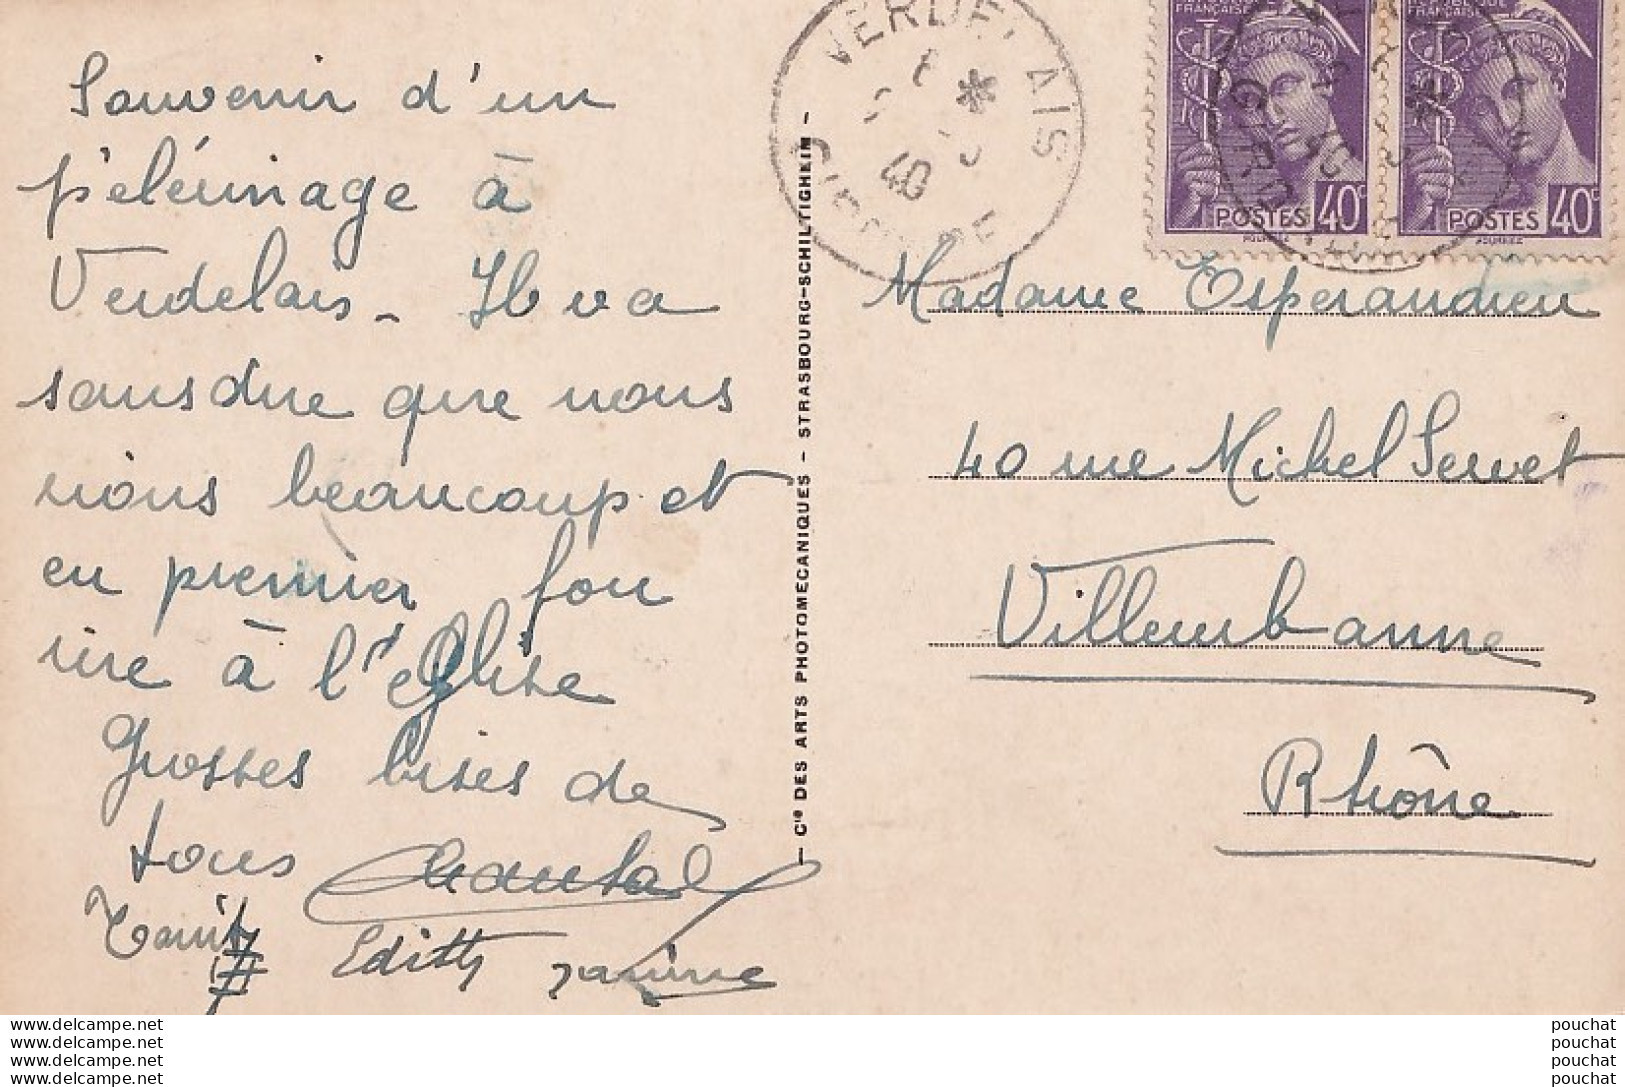 Souvenir d'un
pélérinage à
Verdelais - Il va
sans dire que nous
rions beaucoup et
en premier fou
rire à l'église
Grosses bises de
tous Chantal
Edith Janine
- Cie DES ARTS PHOTOMECANIQUES - STRASBOURG-SCHILTIGHEIM -
VERDELAIS
40
GIRONDE
FRANÇAISE
POSTES 40c
POSTES 40c
Madame Esperandieu
40 rue Michel Servet
Villeurbanne
Rhône
www.delcampe.net
www.delcampe.net
www.delcampe.net
www.delcampe.net
pouchat
pouchat
pouchat
pouchat